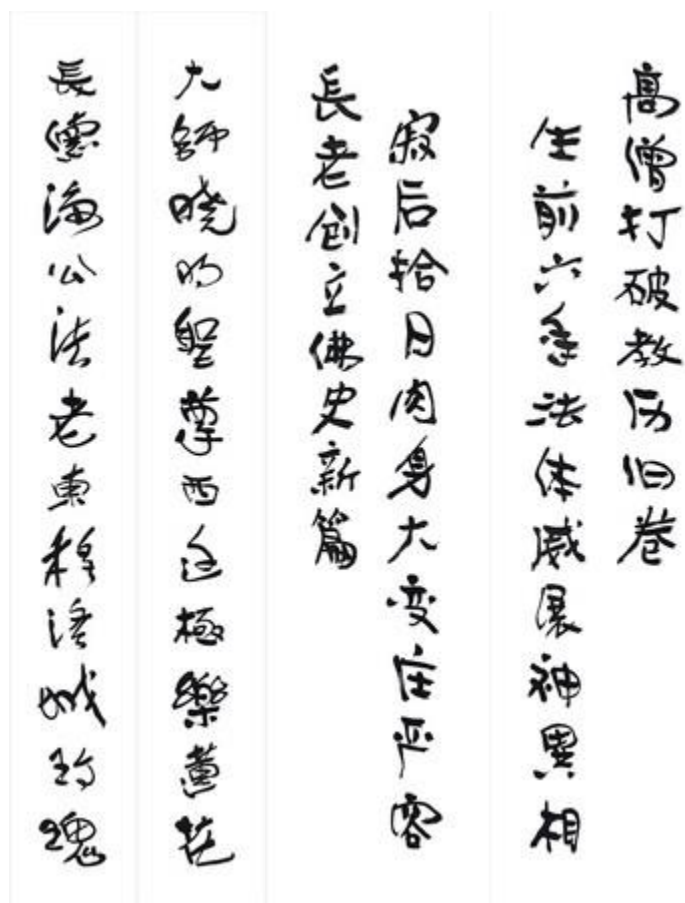 高僧打破教历旧卷
生前六年法体威展神異相
寂后拾日肉身大变庄严容
長老创立佛史新篇
大師晓聖尊西極樂花
長德海公法老東移洛城玫瑰